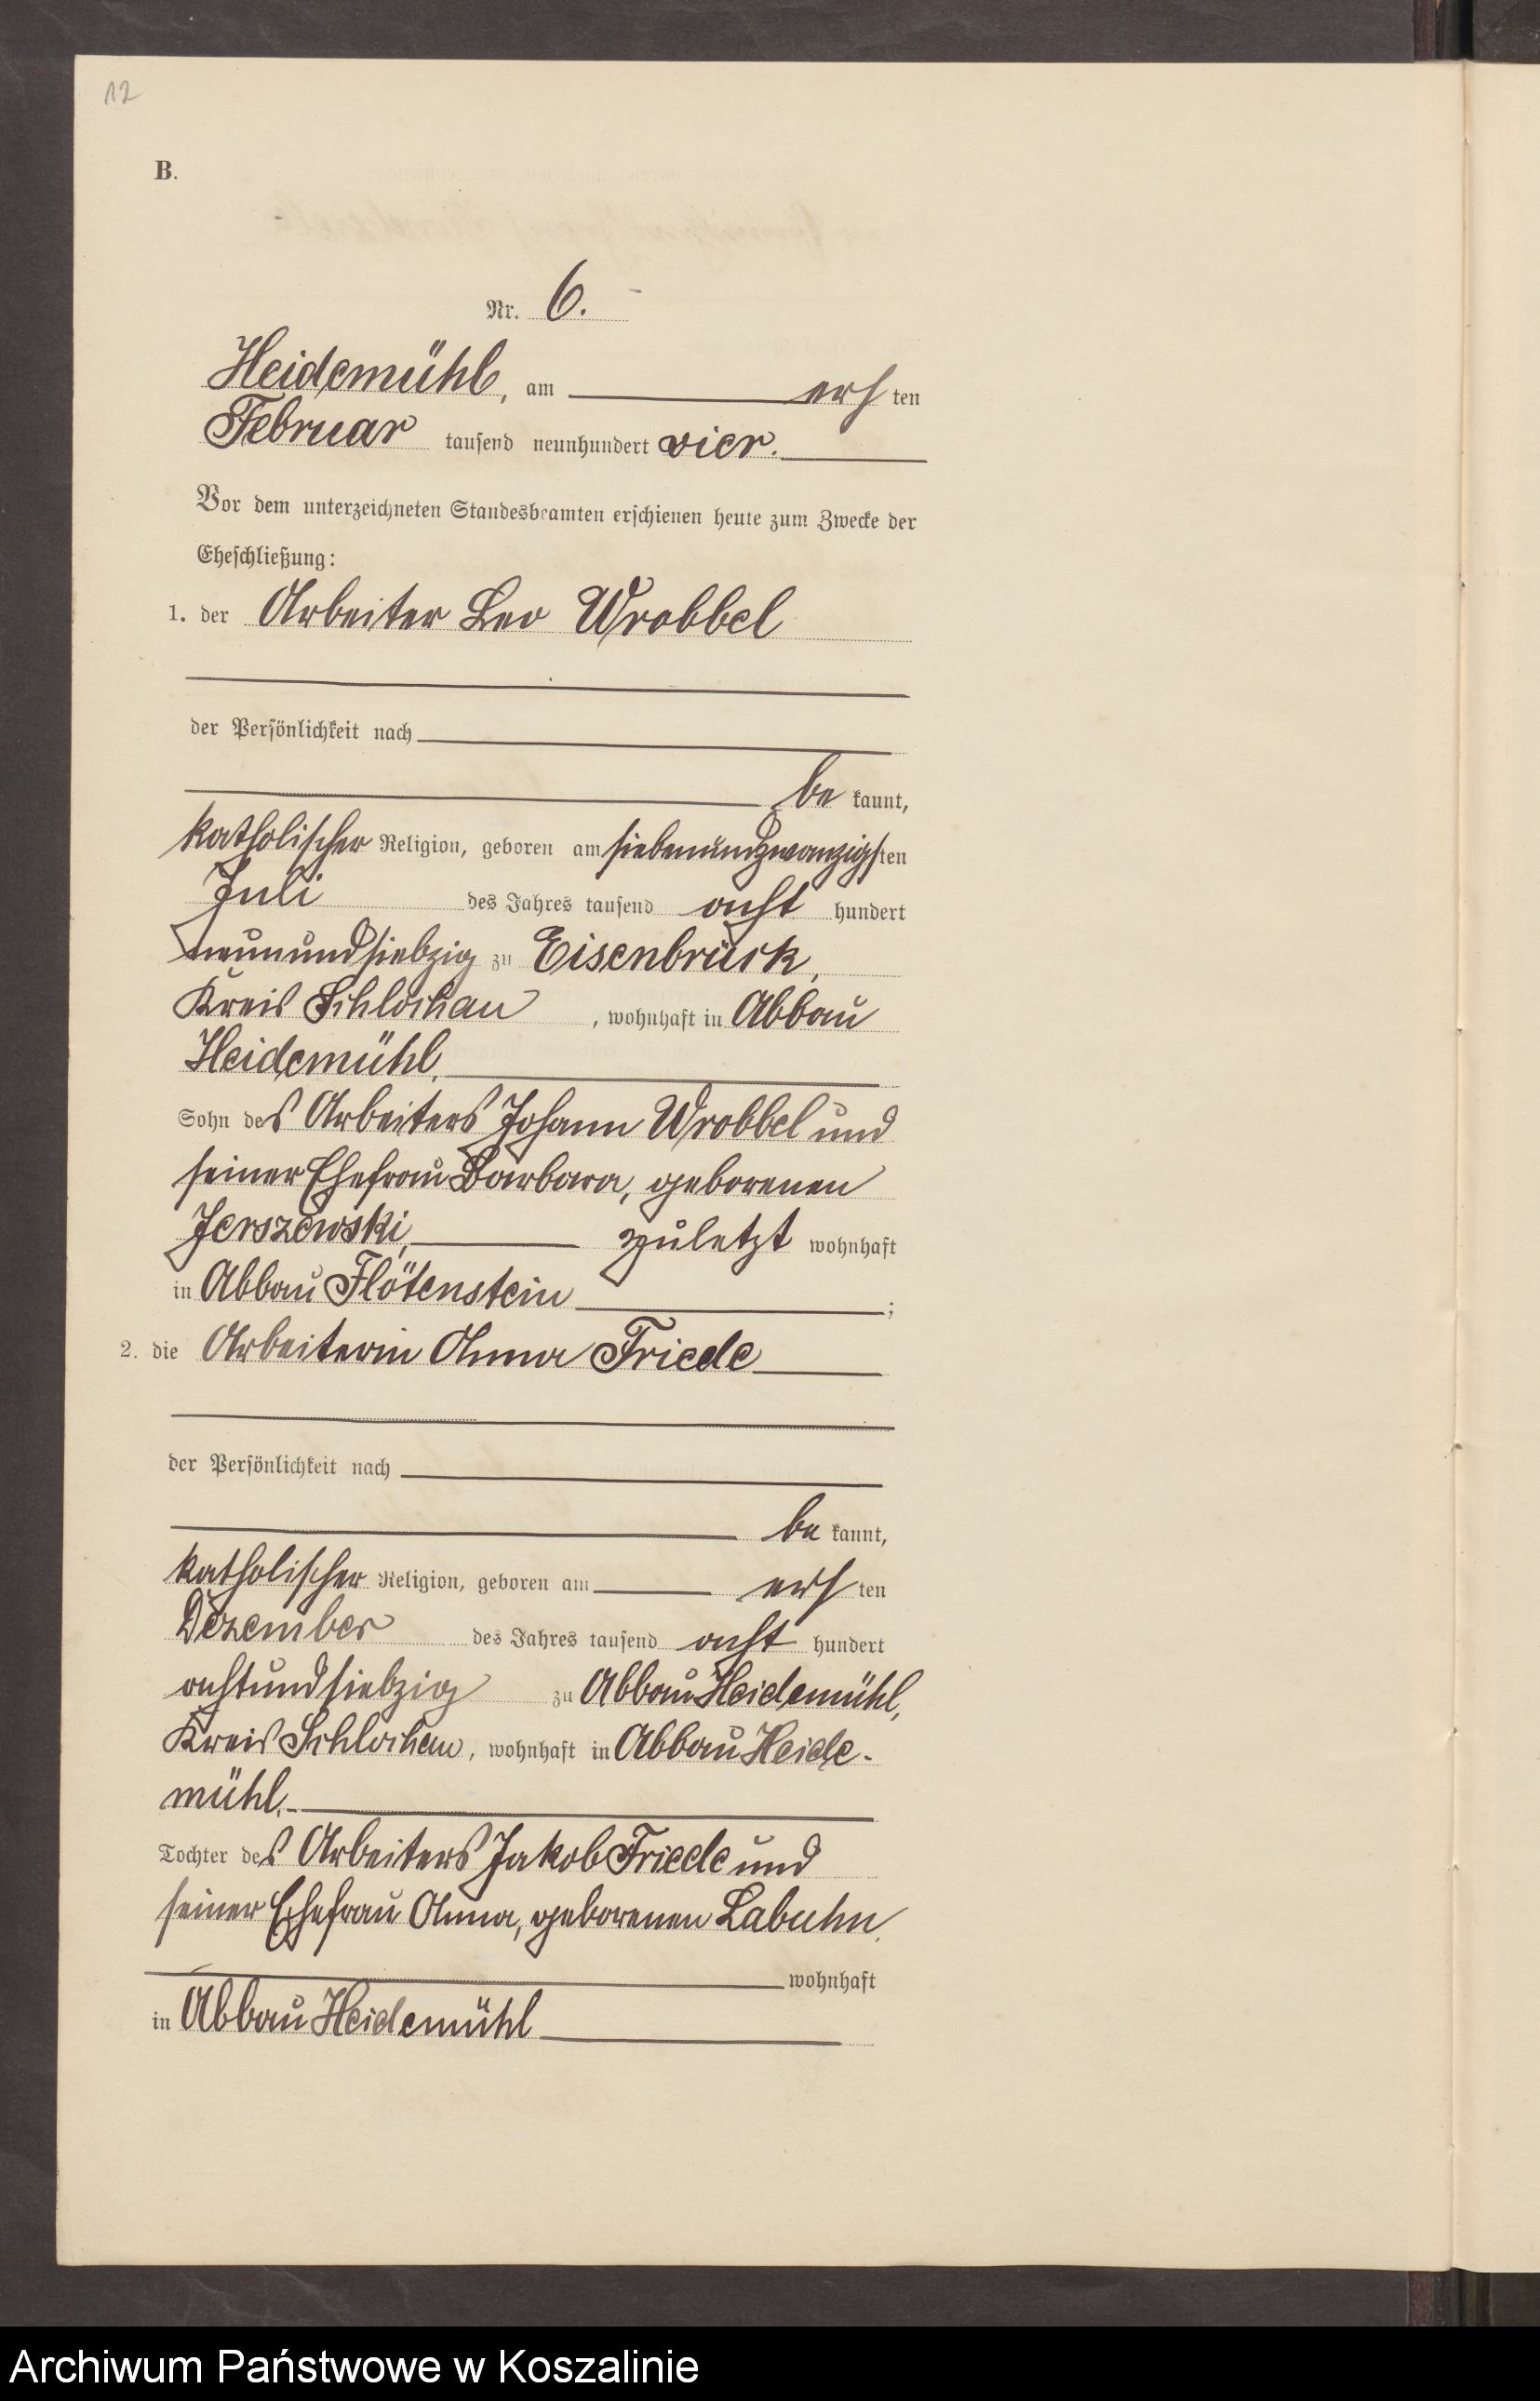 12
B.
Nr. 6.
Heidemühl, am ersten
Februar tausend neunhundert vier.
Vor dem unterzeichneten Standesbeamten erschienen heute zum Zwecke der
Eheschließung:
1. der Arbeiter Leo Wrobbel
der Persönlichkeit nach
be kannt,
katholischer Religion, geboren am siebenundzwanzigsten
Juli des Jahres tausend acht hundert
neunundsiebzig zu Eisenbrück,
Kreis Schlochau, wohnhaft in Abbau
Heidemühl,
Sohn des Arbeiters Johann Wrobbel und
seiner Ehefrau Barbara, geborenen
Jerszewski, zuletzt wohnhaft
in Abbau Flötenstein;
2. die Arbeiterin Anna Friede
der Persönlichkeit nach
be kannt,
katholischer Religion, geboren am ersten
Dezember des Jahres tausend acht hundert
achtundsiebzig zu Abbau Heidemühl,
Kreis Schlochau, wohnhaft in Abbau Heide-
mühl,
Tochter des Arbeiters Jakob Friede und
seiner Ehefrau Anna, geborenen Labuhn,
wohnhaft
in Abbau Heidemühl
Archiwum Państwowe w Koszalinie